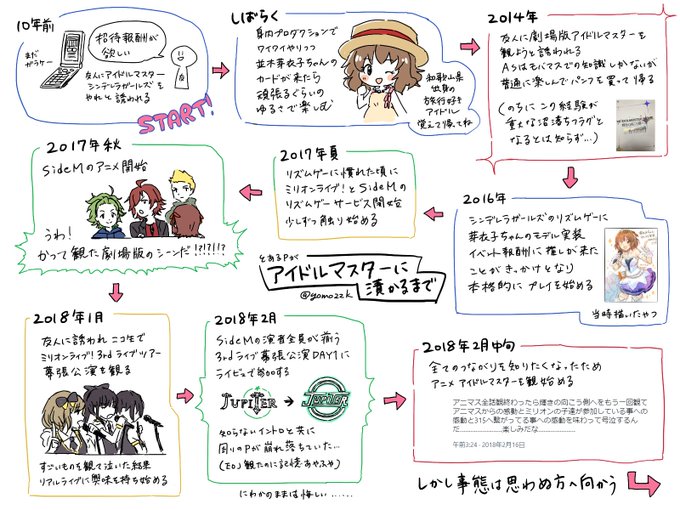 10年前
まだ
ガラケー
招待報酬が
欲しい
友人にアイドルマスター
シンデレラガールズを
やれと誘われる
START!
しばらく
身内プロダクションで
ワイワイやりつつ
並木芽衣子ちゃんの
カードが来たら
頑張るぐらいの
ゆるさで楽しむ
和歌山県
出身の
旅行好き
アイドル
覚えて帰ってね
2014年
友人に劇場版アイドルマスターを
観ようと誘われる
ASはモバマスでの知識しかないが
普通に楽しんでパンフを買って帰る
(のちにこの経験が
重大な沼落ちフラグと
なるとは知らず…)
2016年
シンデレラガールズのリズムゲーに
芽衣子ちゃんのモデル実装
イベント報酬に推しが来た
ことがきっかけとなり
本格的にプレイを始める
当時描いたやつ
2017年夏
リズムゲーに慣れた頃に
ミリオンライブ!とSideMの
リズムゲーサービス開始
少しずつ触り始める
2017年秋
SideMのアニメ開始
うわ!
かつて観た劇場版のシーンだ!?!?!!?
とあるPが
アイドルマスターに
漬かるまで
@yomo22k
2018年1月
友人に誘われニコ生で
ミリオンライブ!3rdライブツアー
幕張公演を観る
すごいものを観て泣いた結果
リアルライブに興味を持ち始める
2018年2月
SideMの演者全員が揃う
3rdライブ幕張公演DAY1に
ライビュで参加する
JUPITER
Jupiter
知らないイントロと共に
周りのPが崩れ落ちていた…
(EO)観たのに記憶があやふや)
にわかのままは悔しい……
2018年2月中旬
全てのつながりを知りたくなったため
アニメ アイドルマスターを観始める
アニマス全話観終わったら輝きの向こう側へをもう一回観て
アニマスからの感動とミリオンの子達が参加している事への
感動と315へ繋がってる事への感動を味わって号泣するん
だ…………………楽しみだな…………………
午前3:24 - 2018年2月16日
しかし事態は思わぬ方へ向かう